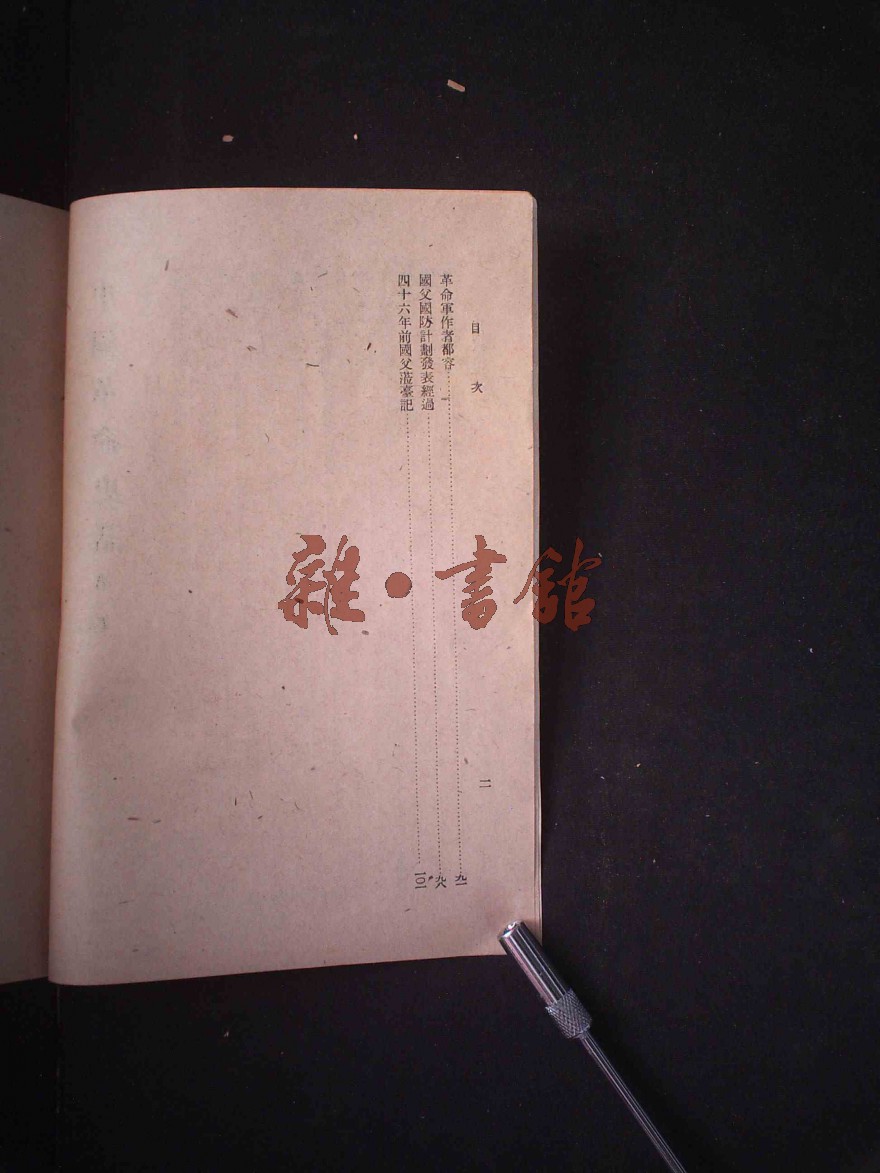 目次
二
革命軍作者鄒容……九一
國父國防計劃發表經過……九八
四十六年前國父蒞臺記……一〇一
雜·書館